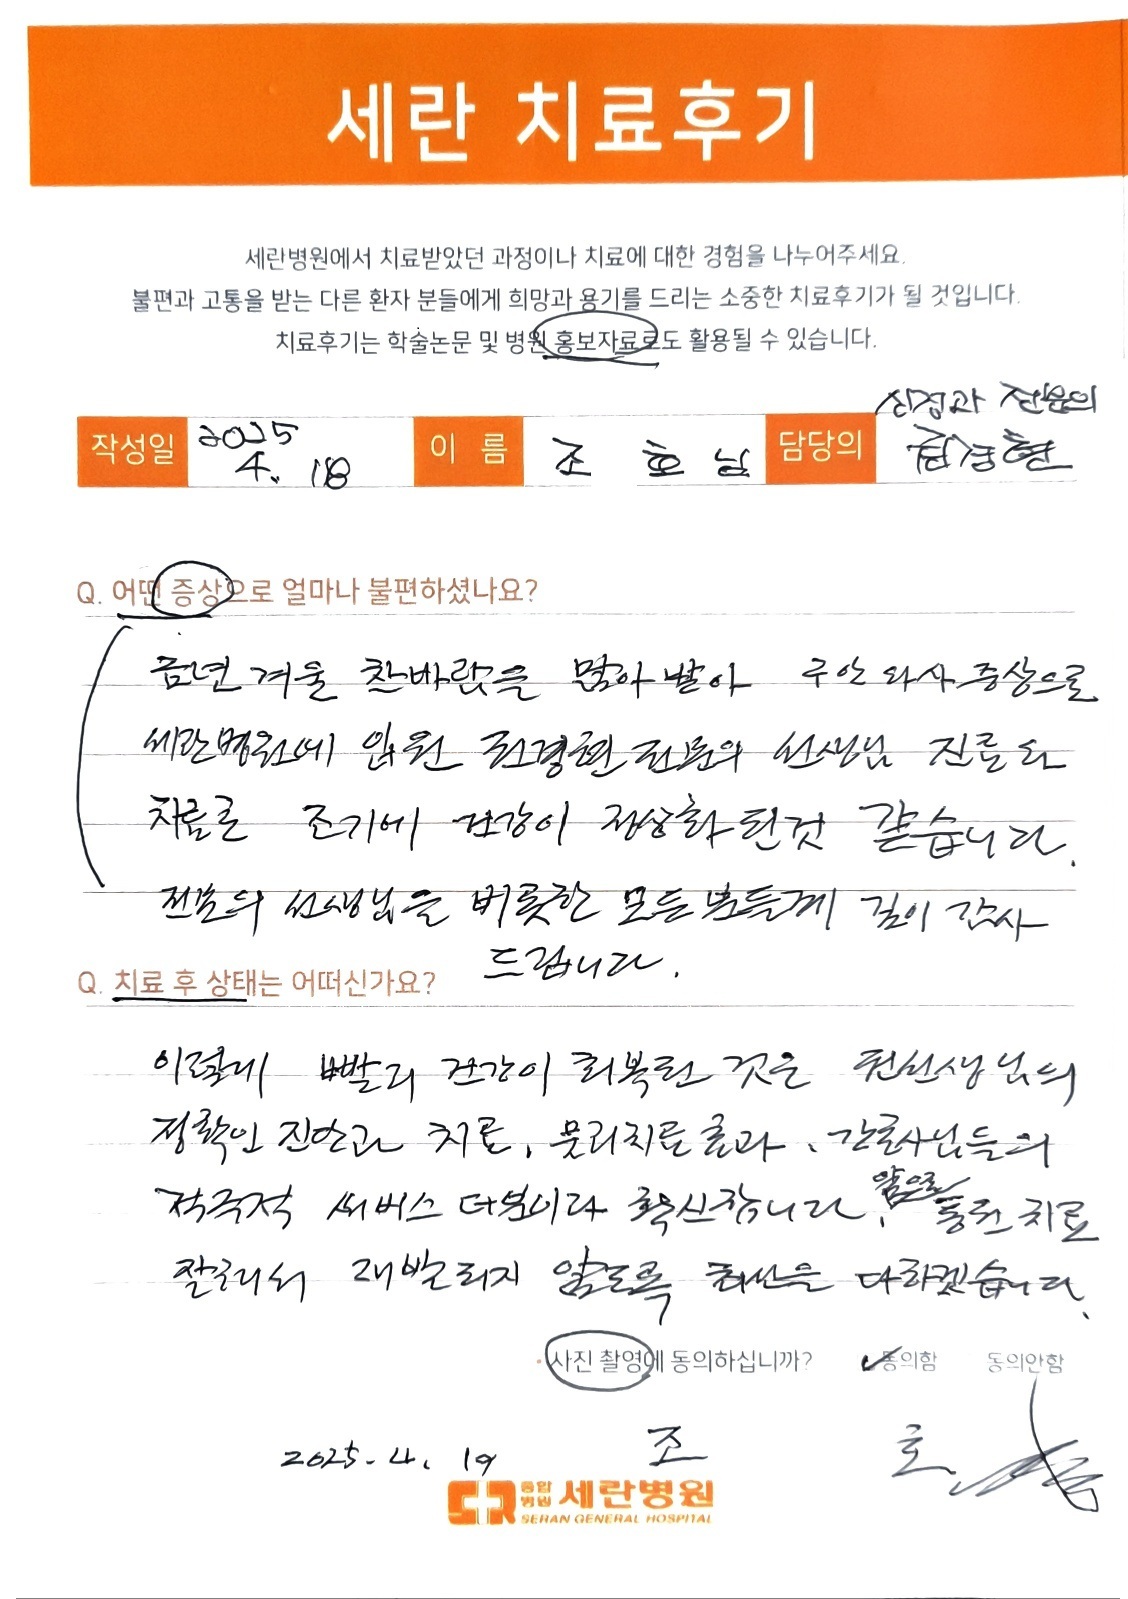 세란 치료후기
세란병원에서 치료받았던 과정이나 치료에 대한 경험을 나누어주세요.
불편과 고통을 받는 다른 환자 분들에게 희망과 용기를 드리는 소중한 치료후기가 될 것입니다.
치료후기는 학술논문 및 병원 홍보자료로도 활용될 수 있습니다.
신경과 전문의
작성일 2025 4. 18 이름 조 호 님 담당의
Q. 어떤 증상으로 얼마나 불편하셨나요?
금년 겨울 찬바람을 많아 받아 구안 와사 증상으로
세란병원에 입원 권경현 전문의 선생님 진료와
치료로 조기에 건강이 정상화 된것 같습니다.
전문의 선생님을 비롯한 모든 분들께 깊이 감사
드립니다.
Q. 치료 후 상태는 어떠신가요?
이렇게 빨리 건강이 회복된 것은 권선생님의
정확인 진단과 치료, 물리치료 효과, 간호사님들의
적극적 써버스 더분이라 확신합니다. 앞으로 통원 치료
잘해서 재발되지 않도록 최선을 다하겠습니다.
사진 촬영에 동의하십니까? 동의함 동의안함
2025. 4. 19 조 호
종합병원 세란병원
SERAN GENERAL HOSPITAL